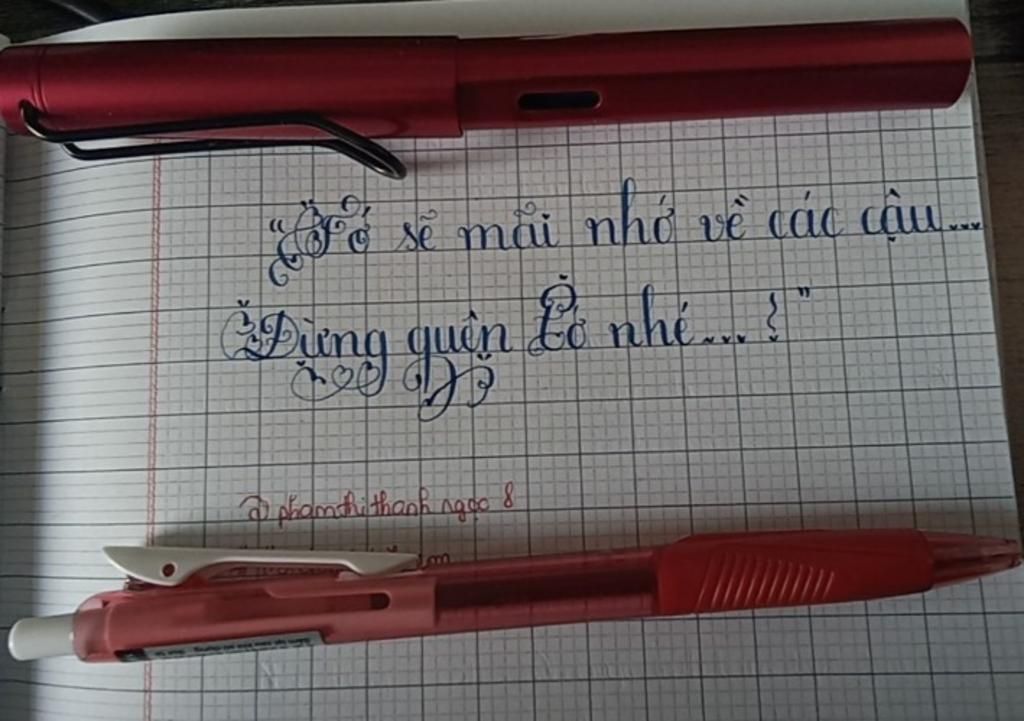 "Tớ sẽ mãi nhớ về các cậu...
Đừng quên tớ nhé...!"
@phamthithanhngoc8